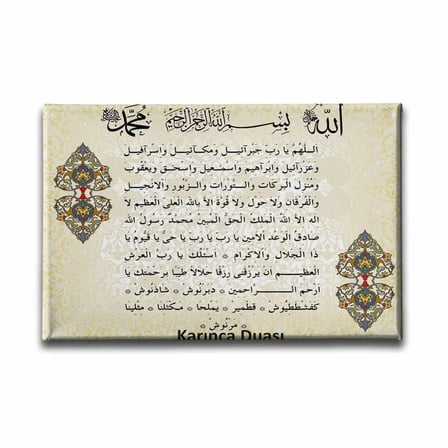 الله بسم الله الرحمن الرحيم محمد
اللهم يا رب جبرائيل وميكائيل واسرافيل
وعزرائيل وابراهيم واسمعيل واسحق ويعقوب
ومنزل البركات والتورات والزبور والانجيل
والفرقان ولا حول ولا قوة الا بالله العلي العظيم لا
اله الا الله الملك الحق المبين محمد رسول الله
صادق الوعد الامين يا رب يا رب يا حي يا قيوم يا
ذا الجلال والاكرام * اسئلك يا رب العرش
العظيم ان يرزقني رزقا حلالا طيبا برحمتك يا
ارحم الراحمين * دبرنوش * شاذنوش *
كفشططيوش * قطمير * يمليخا * مكثلينا * مثلينا
* مرنوش *
Karınca Duası